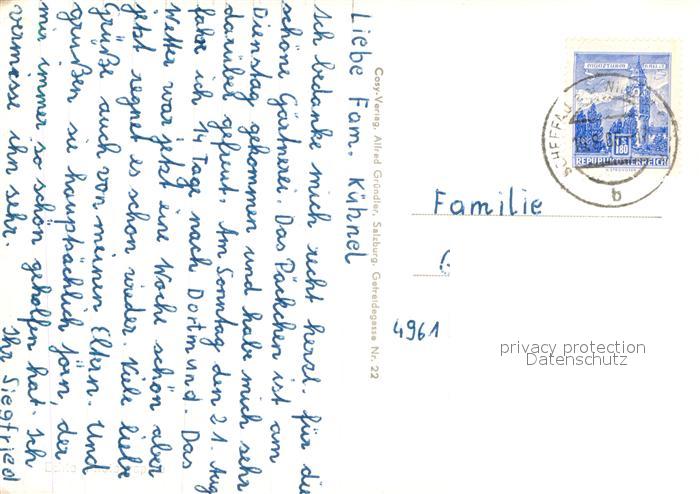 Liebe Fam. Kühnel
Ich bedanke mich recht herzl. für die
schöne Gärtnerei. Das Päckchen ist am
Dienstag gekommen und habe mich sehr
darüber gefreut. Am Sonntag den 21. Aug
fahre ich 14 Tage nach Dortmund. Das
Wetter war jetzt eine Woche schön aber
jetzt regnet es schon wieder. Viele liebe
Grüße auch von meinen Eltern. Und
grüßen sie hauptsächlich Jörn, der
mir immer so schön geholfen hat. Ich
vermisse ihn sehr.
Ihr Siegfried
Cosy-Verlag, Alfred Gründler, Salzburg, Getreidegasse Nr. 22
MÜNZTURM
S 1.80
REPUBLIK ÖSTERREICH
b
Familie
4961
privacy protection
Datenschutz